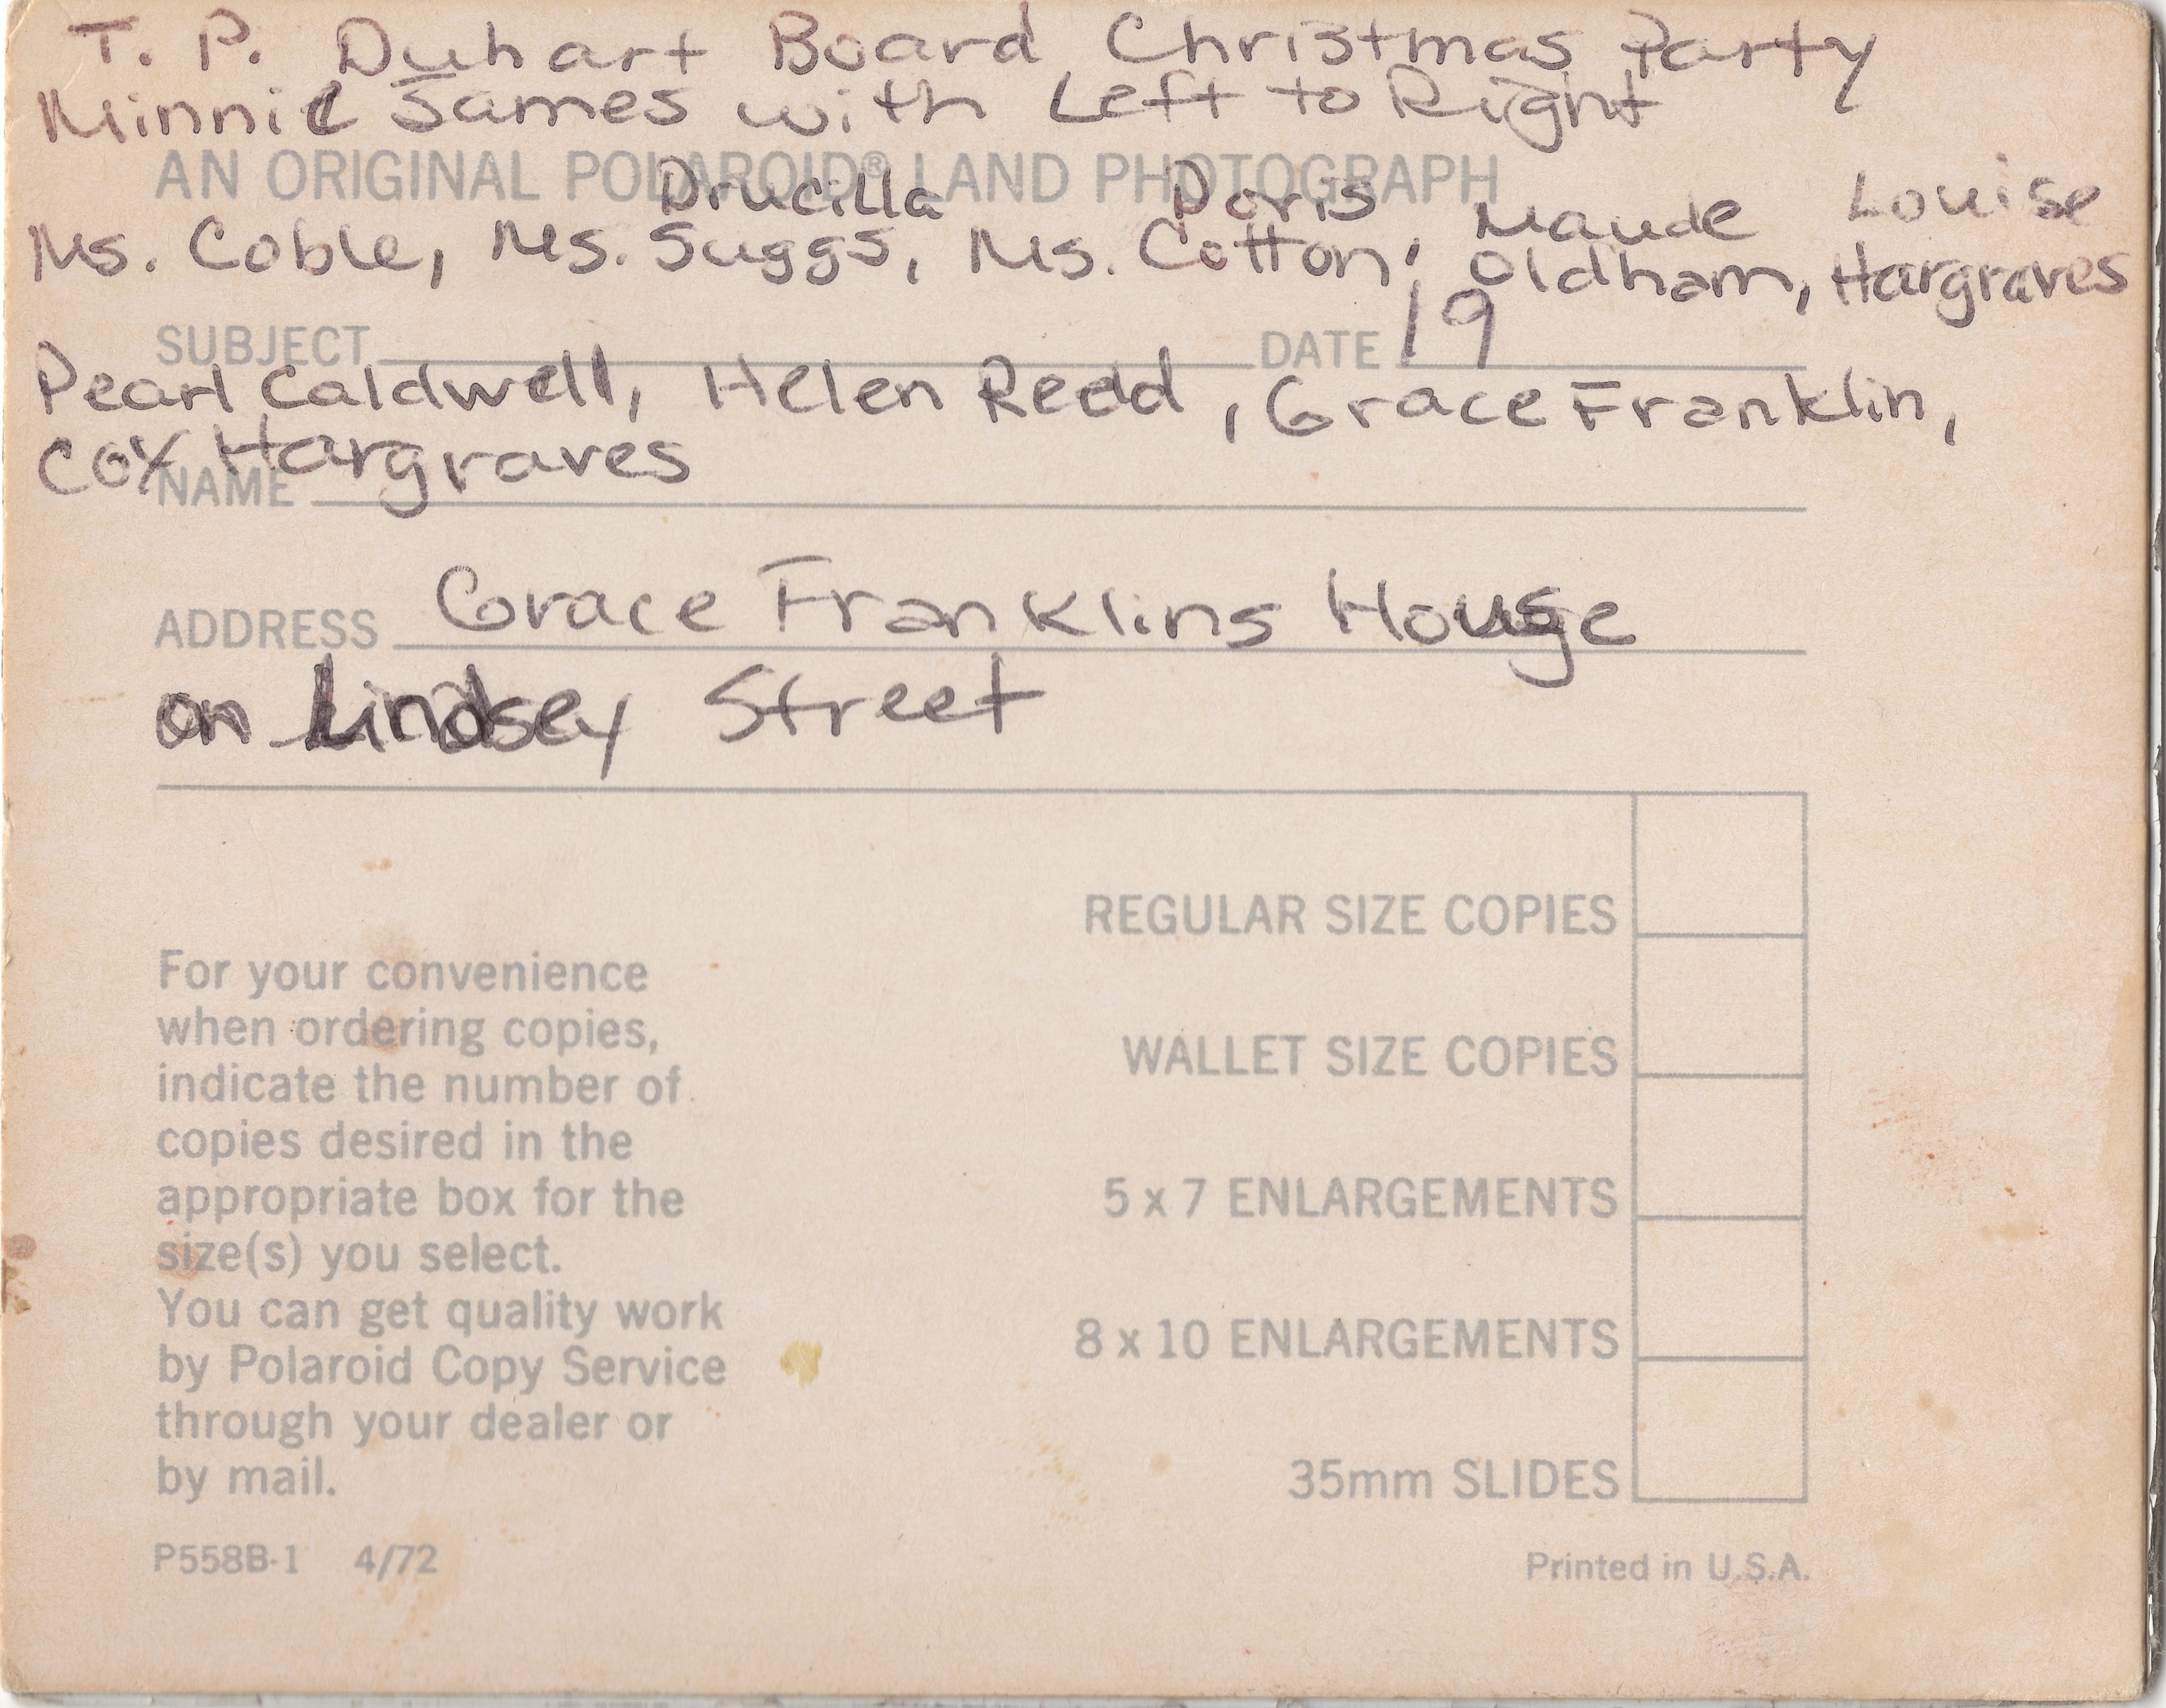 T. P. Duhart Board Christmas Party
Minnie James with Left to Right
AN ORIGINAL POLAROID® LAND PHOTOGRAPH
Drucilla Doris Maude Louise
Ms. Coble, Ms. Suggs, Ms. Cotton, Oldham, Hargraves
SUBJECT DATE 19
Pearl Caldwell, Helen Redd, Grace Franklin,
Cox Hargraves
NAME
ADDRESS Grace Franklins House
on Lindsey Street
REGULAR SIZE COPIES
WALLET SIZE COPIES
5 x 7 ENLARGEMENTS
8 x 10 ENLARGEMENTS
35mm SLIDES
For your convenience
when ordering copies,
indicate the number of
copies desired in the
appropriate box for the
size(s) you select.
You can get quality work
by Polaroid Copy Service
through your dealer or
by mail.
P558B-1 4/72
Printed in U.S.A.